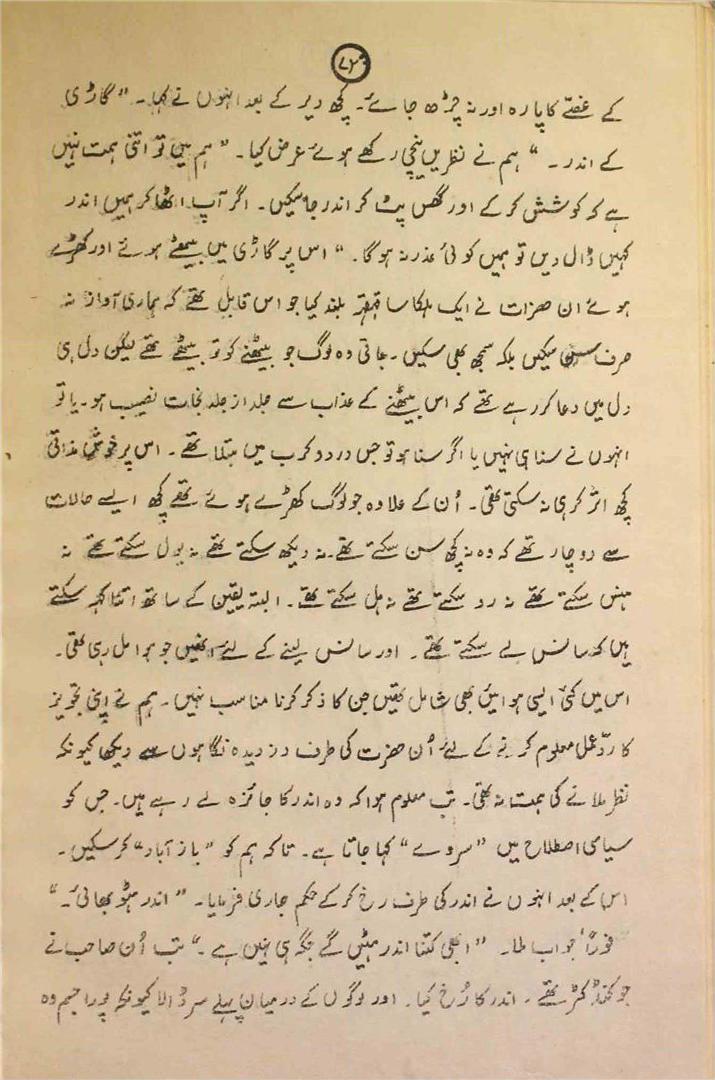 ۷۲
کے غصّے کا پارہ اور نہ چڑھ جائے۔ کچھ دیر کے بعد انہوں نے کہا۔ "گاڑی
کے اندر۔" ہم نے نظریں نیچی رکھے ہوئے عرض کیا۔ "ہم میں تو اتنی ہمت نہیں
ہے کہ کوشش کر کے اور گھس پٹ کر اندر جا سکیں۔ اگر آپ اٹھا کر ہمیں اندر
کہیں ڈال دیں تو ہمیں کوئی عذر نہ ہوگا۔" اس پر گاڑی میں بیٹھے ہوئے اور کھڑے
ہوئے ان حضرات نے ایک ہلکا سا قہقہہ بلند کیا جو اس قابل تھے کہ ہماری آواز نہ
صرف سن سکیں بلکہ سمجھ بھی سکیں۔ باقی وہ لوگ جو بیٹھنے کو تو بیٹھے تھے لیکن دل ہی
دل میں دعا کر رہے تھے کہ اس بیٹھنے کے عذاب سے جلد از جلد نجات نصیب ہو۔ یا تو
انہوں نے سنا ہی نہیں یا اگر سنا ہو تو جس درد و کرب میں مبتلا تھے۔ اس پر خوش مذاقی
کچھ اثر کر ہی نہ سکتی تھی۔ اُن کے علاوہ جو لوگ کھڑے ہوئے تھے کچھ ایسے حالات
سے دوچار تھے کہ وہ نہ کچھ سن سکتے تھے۔ نہ دیکھ سکتے تھے نہ بول سکتے تھے نہ
ہنس سکتے تھے نہ رو سکتے تھے نہ ہل سکتے تھے۔ البتہ یقین کے ساتھ اتنا کہہ سکتے
ہیں کہ سانس لے سکتے تھے۔ اور سانس لینے کے لئے انھیں جو ہوا مل رہی تھی۔
اس میں کئی ایسی ہوائیں بھی شامل تھیں جن کا ذکر کرنا مناسب نہیں۔ ہم نے اپنی تجویز
کا ردّ عمل معلوم کرنے کے لئے اُن حضرت کی طرف دزدیدہ نگاہوں سے دیکھا کیونکہ
نظر ملانے کی ہمت نہ تھی۔ تب معلوم ہوا کہ وہ اندر کا جائزہ لے رہے ہیں۔ جس کو
سیاسی اصطلاح میں "سروے" کہا جاتا ہے۔ تاکہ ہم کو "باز آباد" کر سکیں۔
اس کے بعد انہوں نے اندر کی طرف رخ کر کے حکم جاری فرمایا۔ "اندر ہٹو بھائی۔"
فوراً جواب ملا۔ "ابھی کتنا اندر ہٹیں گے جگہ ہی نہیں ہے۔" تب اُن صاحب نے
جو کنڈکٹر تھے۔ اندر کا رُخ کیا۔ اور لوگوں کے درمیان پہلے سر ڈالا کیونکہ پورا جسم وہ